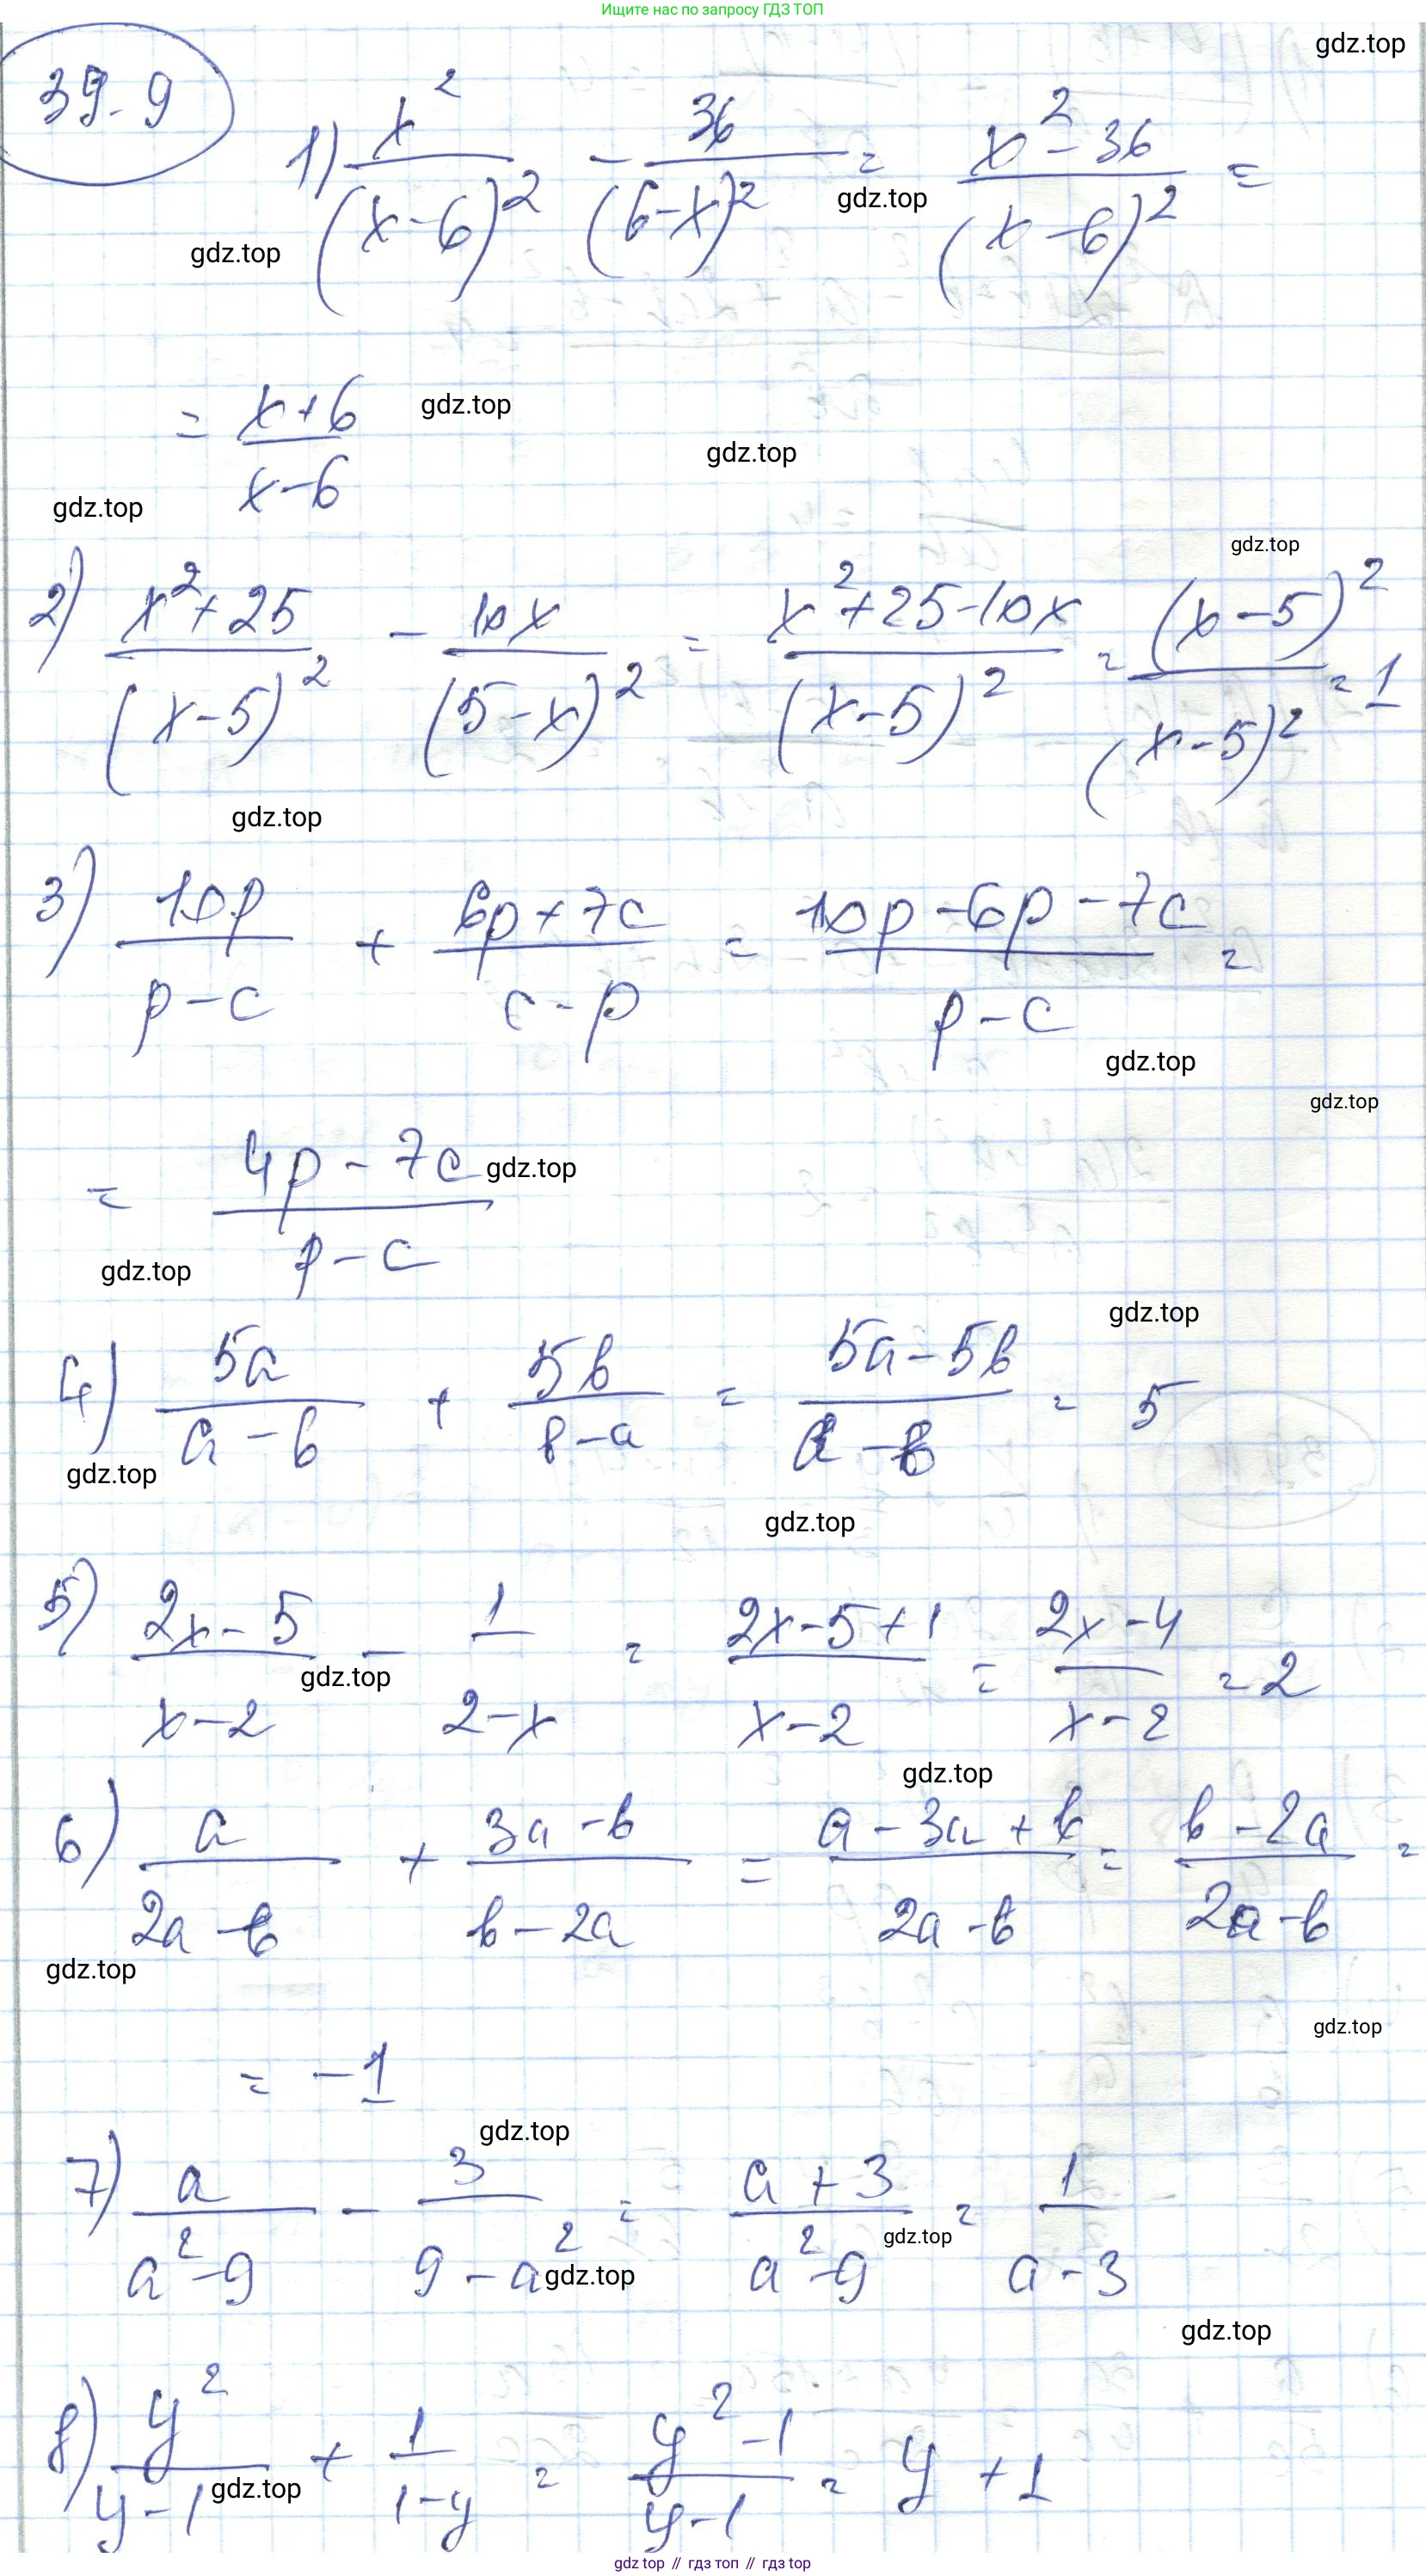 Ищите нас по запросу ГДЗ ТОП
gdz.top
39.9
1) x²/(x-6)² - 36/(6-x)² = (x²-36)/(x-6)² =
gdz.top
gdz.top
= (x+6)/(x-6)
gdz.top
gdz.top
gdz.top
gdz.top
2) (x²+25)/(x-5)² - 10x/(5-x)² = (x²+25-10x)/(x-5)² = (x-5)²/(x-5)² = 1
gdz.top
3) 10p/(p-c) + (6p+7c)/(c-p) = (10p-6p-7c)/(p-c) =
gdz.top
gdz.top
= (4p-7c)/(p-c)
gdz.top
gdz.top
gdz.top
4) 5a/(a-b) + 5b/(b-a) = (5a-5b)/(a-b) = 5
gdz.top
gdz.top
5) (2x-5)/(x-2) - 1/(2-x) = (2x-5+1)/(x-2) = (2x-4)/(x-2) = 2
gdz.top
gdz.top
6) a/(2a-b) + (3a-b)/(b-2a) = (a-3a+b)/(2a-b) = (b-2a)/(2a-b) =
gdz.top
gdz.top
= -1
gdz.top
7) a/(a²-9) - 3/(9-a²) = (a+3)/(a²-9) = 1/(a-3)
gdz.top
gdz.top
gdz.top
8) y²/(y-1) + 1/(1-y) = (y²-1)/(y-1) = y+1
gdz.top
gdz top // гдз топ // гдз top